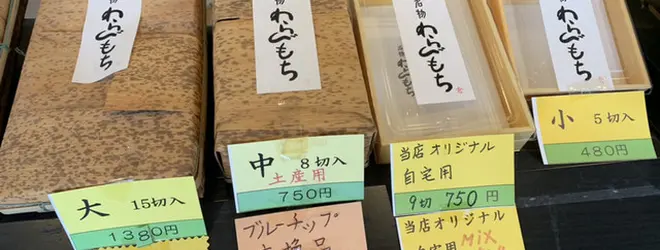 わらびもち
大 15切入
1380円
わらびもち
中 8切入
土産用
750円
ブルーチップ
名物
わらびもち
当店オリジナル
自宅用
9切 750円
当店オリジナル
自宅用 MIX
わらびもち
小 5切入
480円